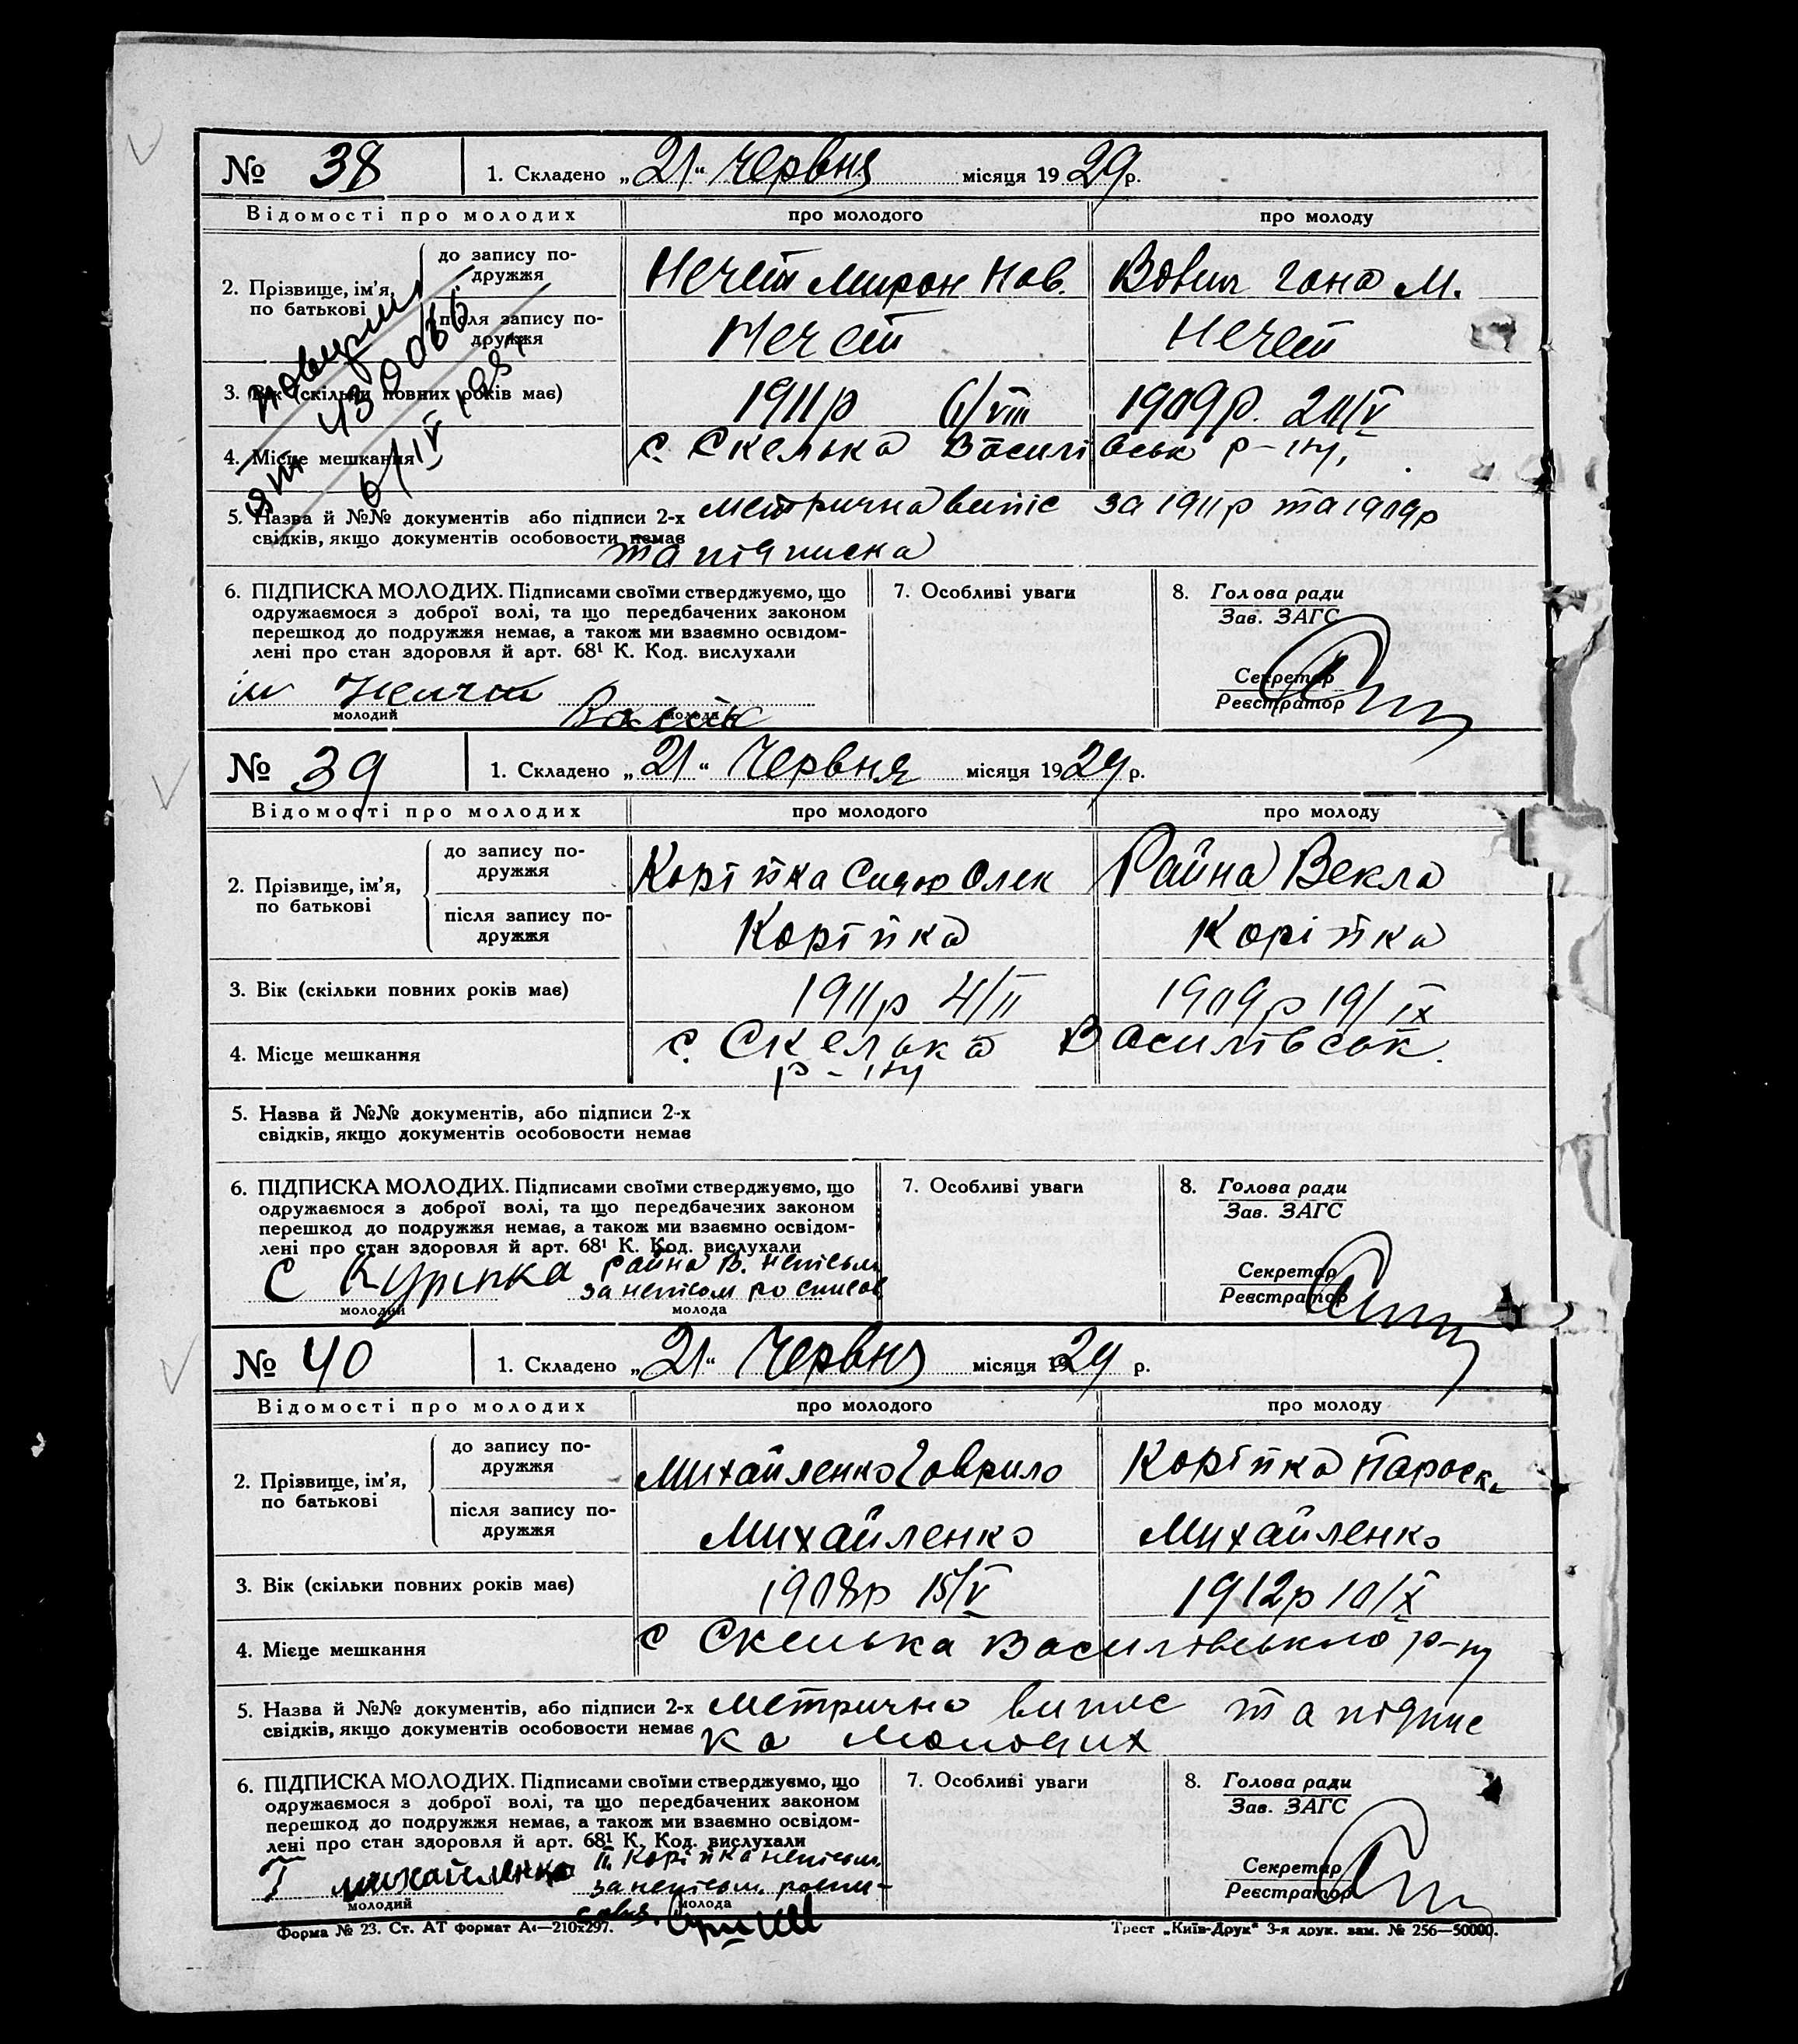 № 38 1. Складено „21“ Червня місяця 1929р.
Відомості про молодих про молодого про молоду
2. Прізвище, ім'я, по батькові
до запису по-
дружжя
Нечет Мирон Пав. Вовк Гана М.
після запису по-
дружжя
Нечет Нечет
3. Вік (скільки повних років має) 1911р 6/VIII 1909р. 20/V
4. Місце мешкання с. Скелька Василівськ р-ну,
5. Назва й №№ документів або підписи 2-х метрична випіс за 1911р та 1909р
свідків, якщо документів особовости немає
та підписка
6. ПІДПИСКА МОЛОДИХ. Підписами своїми стверджуємо, що
одружаємося з доброї волі, та що передбачених законом
перешкод до подружжя немає, а також ми взаємно освідом-
лені про стан здоровля й арт. 68¹ К. Код. вислухали
молодий молода
7. Особливі уваги
8. Голова ради
Зав. ЗАГС
Секретар
Реєстратор
№ 39 1. Складено „21“ Червня місяця 1929р.
Відомості про молодих про молодого про молоду
2. Прізвище, ім'я,
по батькові
до запису по-
дружжя
Корїпка Сидор Олек Райна Векла
після запису по-
дружжя
Корїпка Корїпка
3. Вік (скільки повних років має) 1911р 4/II 1909р 19/IX
4. Місце мешкання с. Скелька Василівськ.
р-ну
5. Назва й №№ документів, або підписи 2-х
свідків, якщо документів особовости немає
6. ПІДПИСКА МОЛОДИХ. Підписами своїми стверджуємо, що
одружаємося з доброї волі, та що передбачених законом
перешкод до подружжя немає, а також ми взаємно освідом-
лені про стан здоровля й арт. 68¹ К. Код. вислухали
С Куріпка Райна В. неписьм
за неписьм росписав
молодий молода
7. Особливі уваги
8. Голова ради
Зав. ЗАГС
Секретар
Реєстратор
№ 40 1. Складено „21“ Червня місяця 1929 р.
Відомості про молодих про молодого про молоду
2. Прізвище, ім'я,
по батькові
до запису по-
дружжя
Михайленко Гаврило Корїпка Параск.
після запису по-
дружжя
Михайленко Михайленко
3. Вік (скільки повних років має) 1908р 15/V 1912р 10/X
4. Місце мешкання с Скелька Василівського р-ну
5. Назва й №№ документів, або підписи 2-х метрична випис та підпис
свідків, якщо документів особовости немає ка молодих
6. ПІДПИСКА МОЛОДИХ. Підписами своїми стверджуємо, що
одружаємося з доброї волі, та що передбачених законом
перешкод до подружжя немає, а також ми взаємно освідом-
лені про стан здоровля й арт. 68¹ К. Код. вислухали
Г михайленко П. Корїпка неписьм.
за неписьм. роспи-
сався.
молодий молода
7. Особливі уваги
8. Голова ради
Зав. ЗАГС
Секретар
Реєстратор
Форма № 23. Ст. АТ формат А₄—210х297. Трест „Київ-Друк“ 3-я друк. зам. № 256—50000.